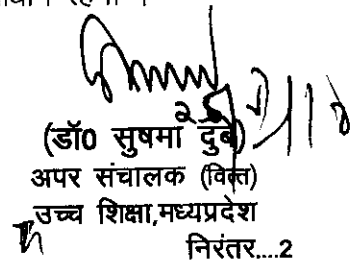 (डॉ0 सुषमा दुबे)
अपर संचालक (वित्त)
उच्च शिक्षा,मध्यप्रदेश
निरंतर....2